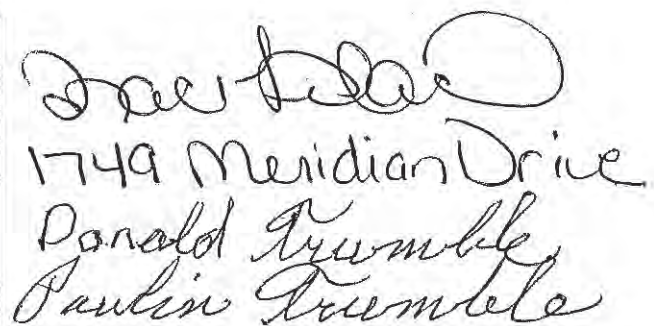 1749 Meridian Drive
Donald Trumble
Paulin Trumble